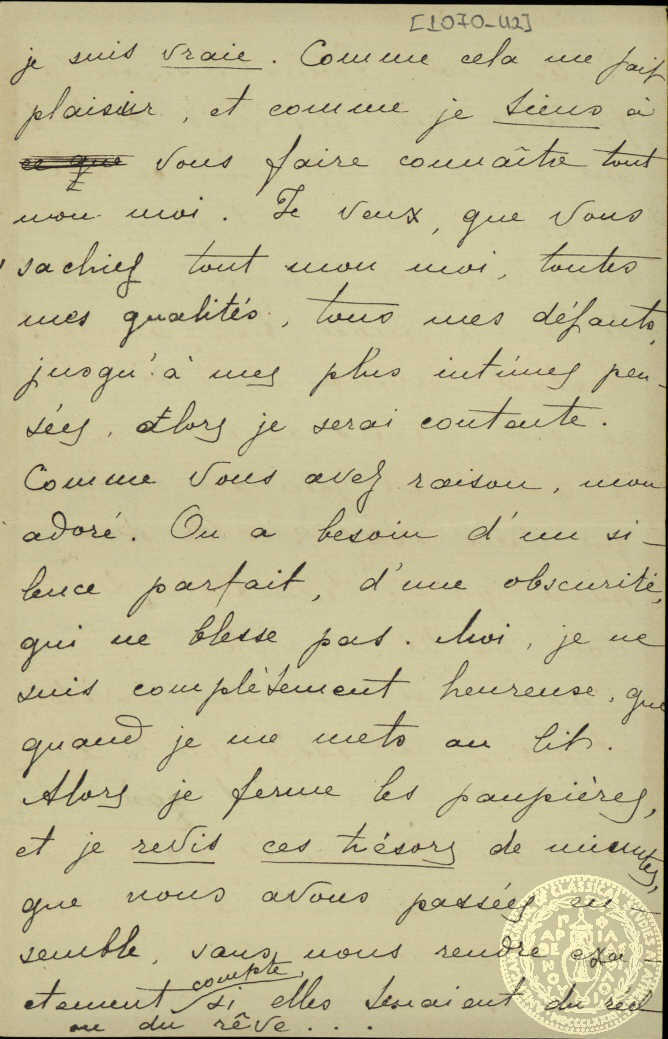 [1070-42]
je suis vraie. Comme cela me fait
plaisir, et comme je tiens à
ce que vous faire connaître tout
mon moi. Je veux, que vous
sachiez tout mon moi, toutes
mes qualités, tous mes défauts,
jusqu'à mes plus intimes pen-
sées, Alors je serai contente.
Comme vous avez raison, mon
adoré. On a besoin d'un si-
lence parfait, d'une obscurité,
qui ne blesse pas. Moi, je ne
suis complètement heureuse, que
quand je me mets au lit.
Alors je ferme les paupières,
et je revis ces trésors de minutes,
que nous avons passées en-
semble, sans nous rendre exa-
ctement compte, si elles tenaient du réel
ou du rêve...